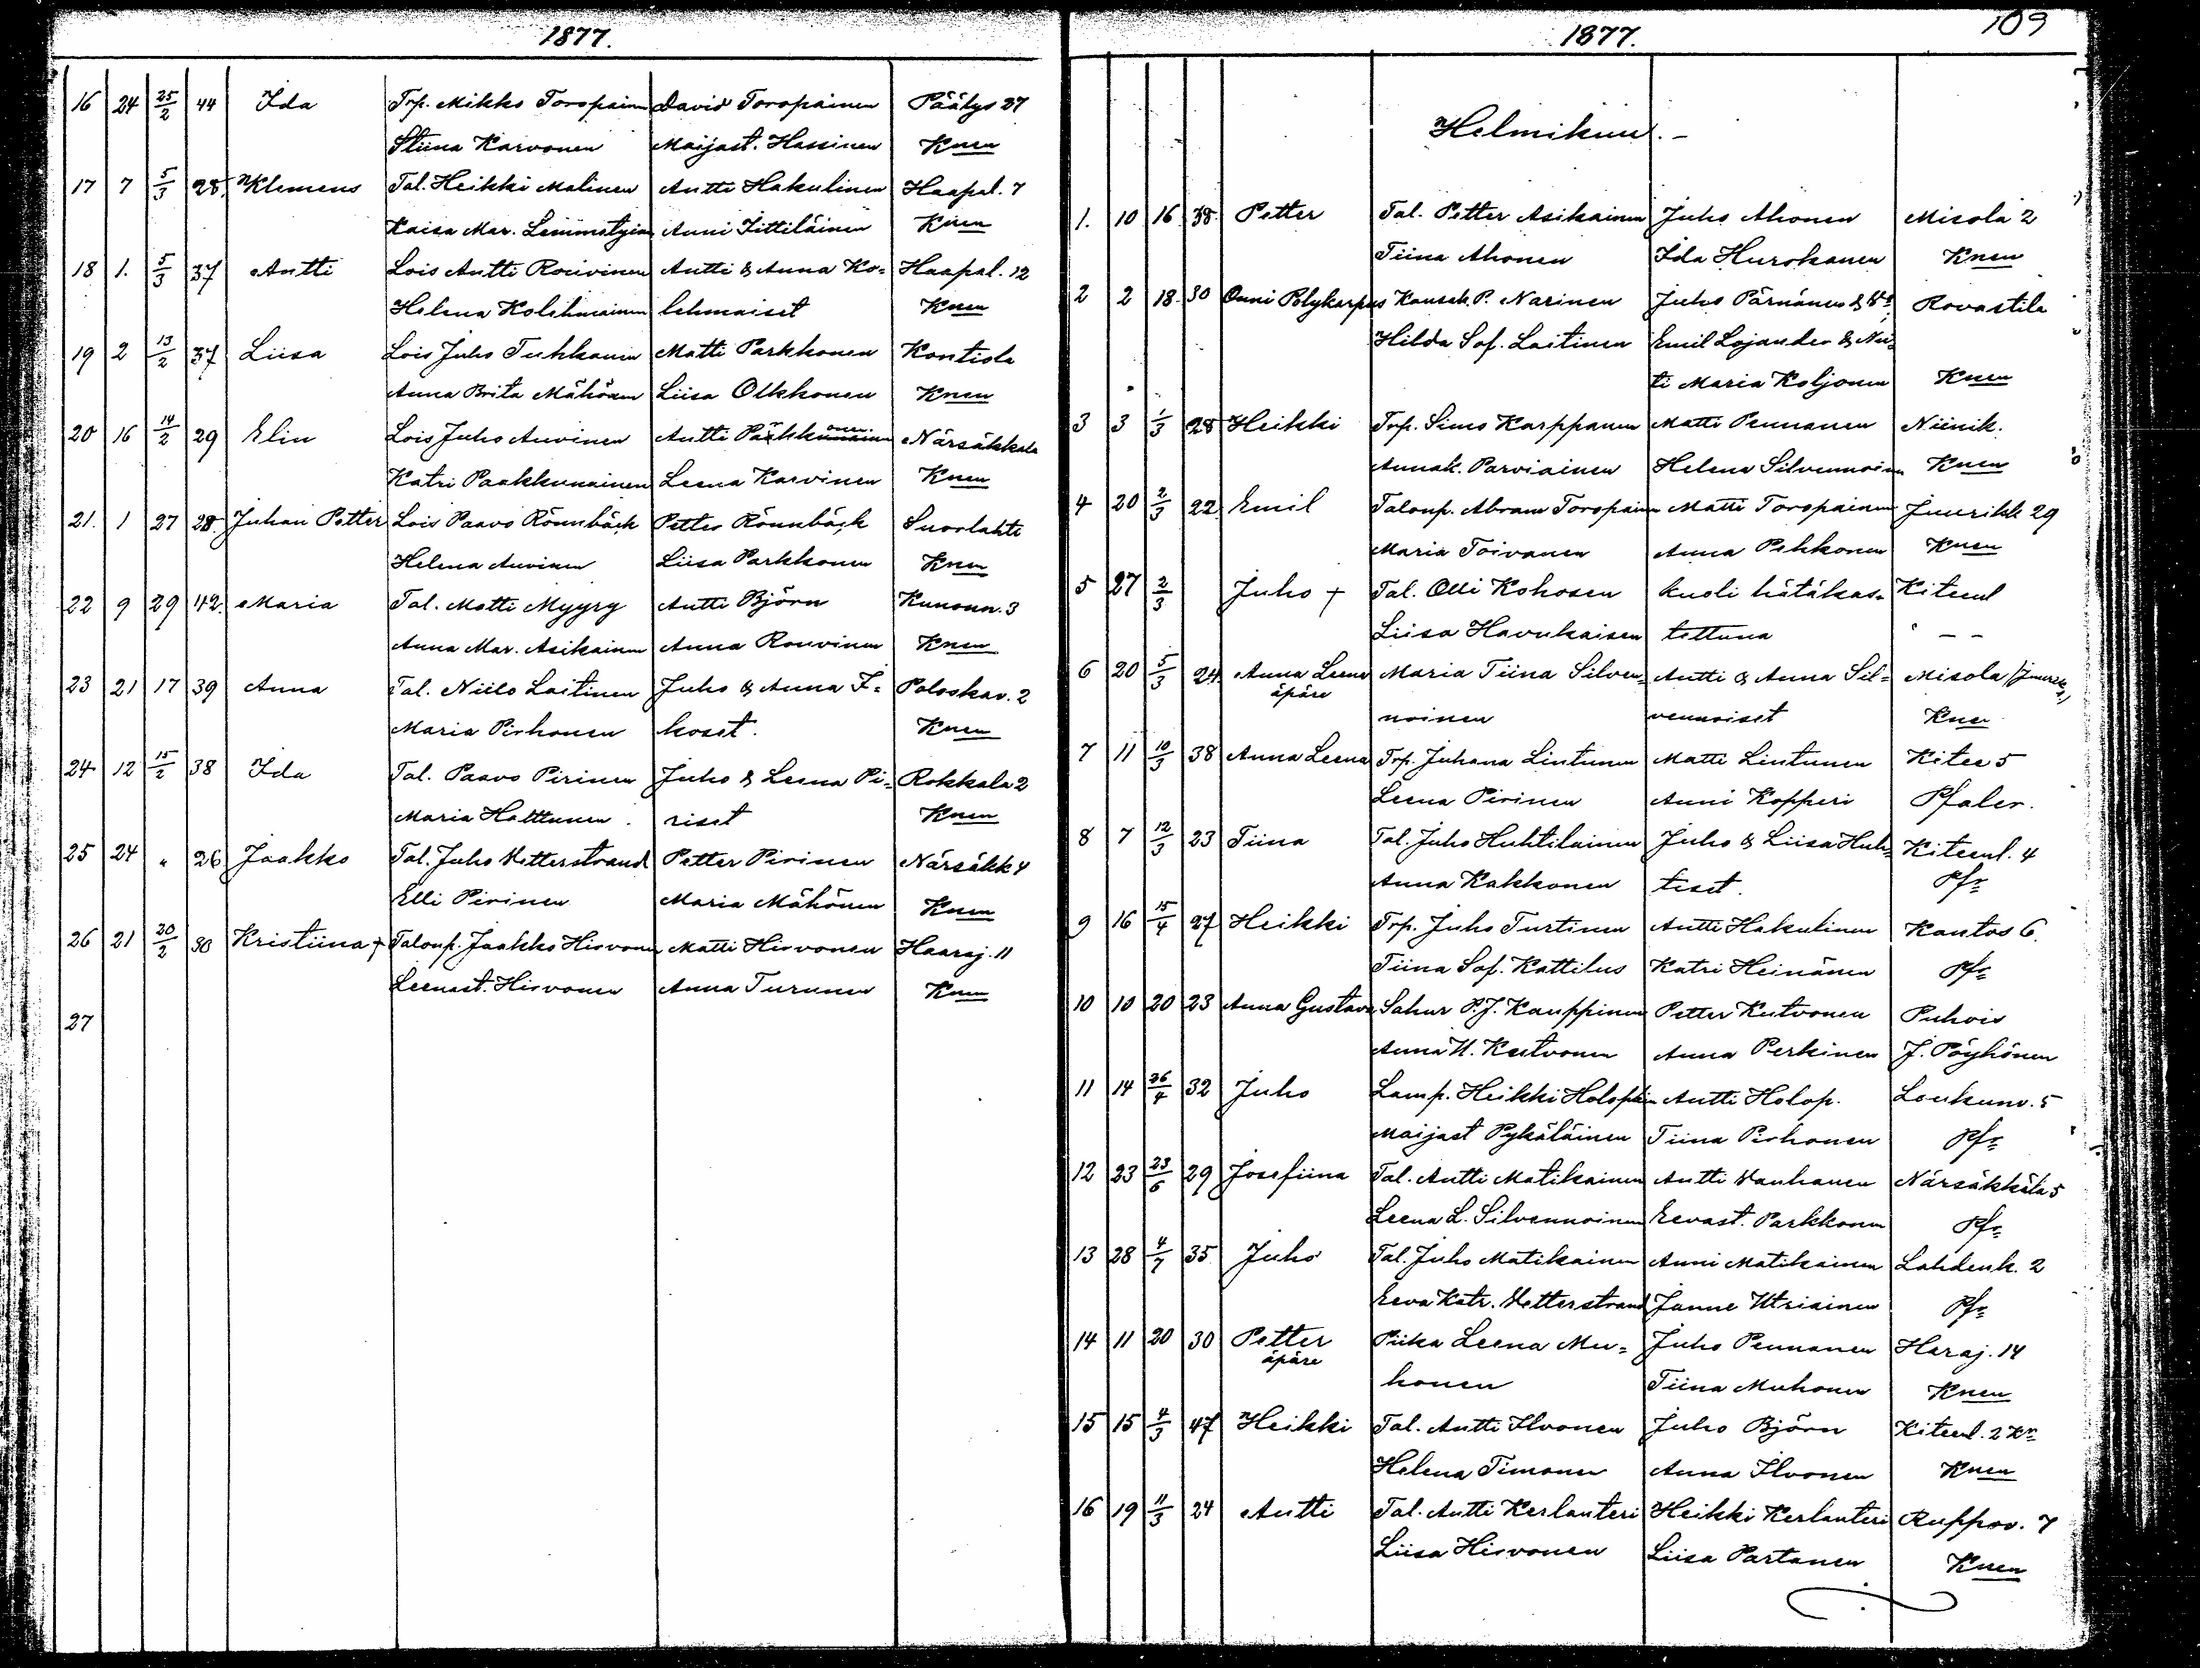 1877.
16 24 25/2 44 Ida Trp. Mikko Toropainen David Toropainen Päätys 27
Stiina Karvonen Maijast. Hassinen Knen
17 7 5/3 28 Klemens Tal. Heikki Malinen Antti Hakulinen Haapal. 7
Kaisa Mar. Anni Tittiläinen Knen
18 1. 5/3 37 Antti Lois Antti Rouvinen Antti & Anna Ko= Haapal. 12
Helena Kolehmainen lehmaiset Knen
19 2 13/2 37 Liisa Lois Juho Tuhkanen Matti Parkkonen Kontiola
Anna Brita Mähönen Liisa Olkkonen Knen
20 16 14/2 29 Elin Lois Juho Auvinen Antti Närsäkkälä
Katri Paakkunainen Leena Karvinen Knen
21. 1 27 28 Juhan Petter Lois Paavo Rönnbäck Petter Rönnbäck Suorlahti
Helena Auvinen Liisa Parkkonen Knen
22 9 29 42. Maria Tal. Matti Myyry Antti Björn Kunonn. 3
Anna Mar. Asikainen Anna Rouvinen Knen
23 21 17 39 Anna Tal. Niilo Laitinen Juho & Anna I= Poloskav. 2
Maria Pirhonen koset. Knen
24 12 15/2 38 Ida Tal. Paavo Pirinen Juho & Leena Pi= Rokkala 2
Maria Halttunen. riset Knen
25 24 " 26 Jaakko Tal. Juho Vetterstrand Petter Pirinen Närsäkk 4
Elli Pirinen Maria Mähönen Knen
26 21 20/2 30 Kristiina + Taloup. Jaakko Hirvonen Matti Hirvonen Haaraj. 11
Leenast. Hirvonen Anna Turunen Knen
27
109
1877.
Helmikuu. -
1. 10 16 38 Petter Tal. Petter Asikainen Juho Ahonen Misola 2
Tiina Ahonen Ida Hurokanen Knen
2 2 18 30 Onni Polykarpus Kansek. P. Narinen Juho Pärnänen & Rovastila
Hilda Sof. Laitinen Emil Lojander & Nei=
ti Maria Koljonen Knen
3 3 1/3 28 Heikki Trp. Simo Karppanen Matti Pennanen Niinik.
Annak. Parviainen Helena Silvennoinen Knen
4 20 2/3 22 Emil Taloup. Abram Toropainen Matti Toropainen Juurikk 29
Maria Toivanen Anna Pekkonen Knen
5 27 2/3 Juho + Tal. Olli Kohosen kuoli hätäkas= Kiteenl
Liisa Havukaisen tettuna " - -
6 20 5/3 24 Anna Leena Maria Tiina Silven= Antti & Anna Sil= Misola
äpäre noinen vennoiset Knen
7 11 10/3 38 Anna Leena Trp. Juhana Lintunen Matti Lintunen Kitee 5
Leena Pirinen Anni Kopperi Pfaler.
8 7 12/3 23 Tiina Tal. Juho Huhtilainen Juho & Liisa Huh= Kiteenl. 4
Anna Kakkonen tiset. Pfr
9 16 15/4 27 Heikki Trp. Juho Turtinen Antti Hakulinen Kantos 6.
Tiina Sof. Kattilus Katri Heinänen Pfr
10 10 20 23 Anna Gustava Sahur P.J. Kauppinen Petter Kutvonen Puhois
Anna U. Kutvonen Anna Perkinen J. Pöyhönen
11 14 26/4 32 Juho Lamp. Heikki Holop Antti Holop. Loukunv. 5
Maijast Pykäläinen Tiina Pirhonen Pfr
12 23 23/6 29 Josefiina Tal. Antti Matikainen Antti Vanhanen Närsäkkälä 5
Leena L. Silvennoinen Eevast. Parkkonen Pfr
13 28 4/7 35 Juho Tal. Juho Matikainen Anni Matikainen Lahdenk. 2
Eeva Katr. Vetterstrand Janne Utriainen Pfr
14 11 20 30 Petter Piika Leena Mu= Juho Pennanen Haraj. 14
äpäre honen Tiina Muhonen Knen
15 15 4/3 47 Heikki Tal. Antti Ilvonen Juho Björn Kiteenl. 2
Helena Timonen Anna Ilvonen Knen
16 19 11/3 24 Antti Tal. Antti Kerlanteri Heikki Kerlanteri Ruppov. 7
Liisa Hirvonen Liisa Partanen Knen